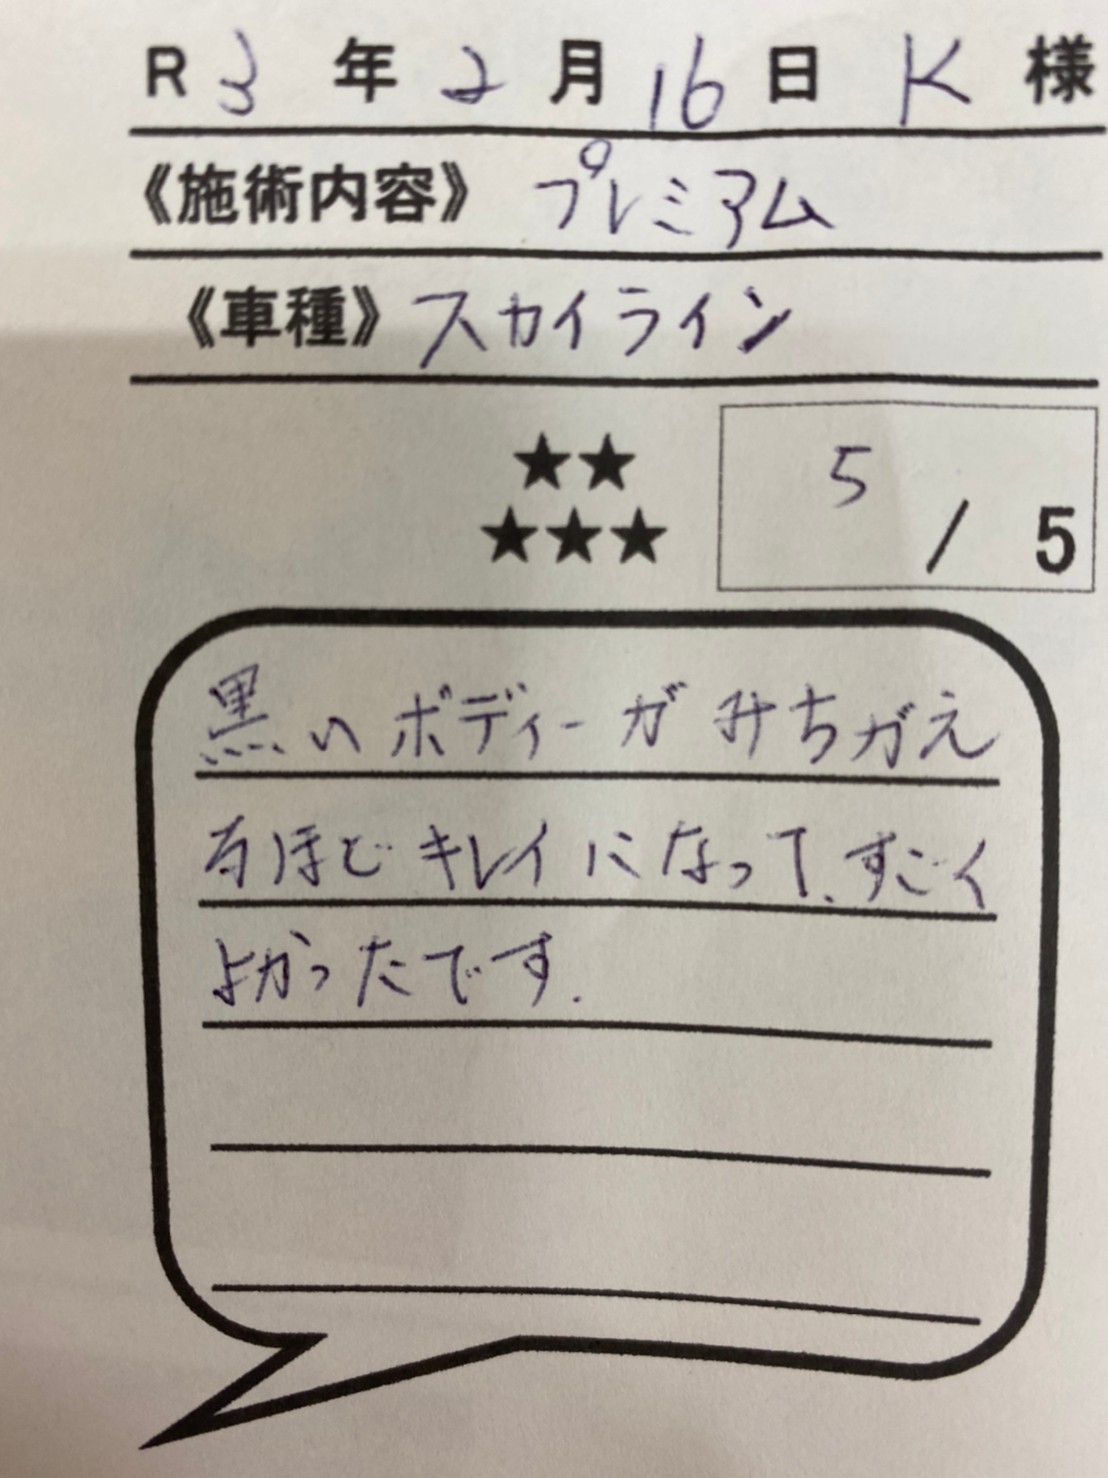 R 3 年 2 月 16 日 K 様
《施術内容》 プレミアム
《車種》 スカイライン
★★
★★★
5 / 5
黒いボディーがみちがえ
るほどキレイになって、すごく
よかったです.